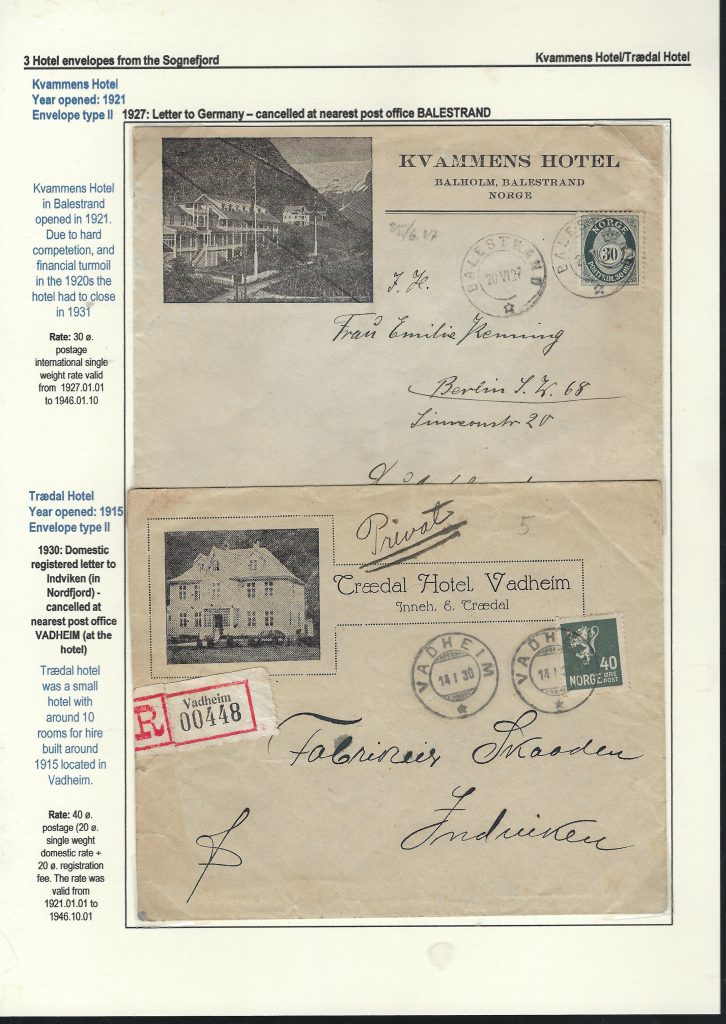 3 Hotel envelopes from the Sognefjord
Kvammens Hotel/Trædal Hotel
Kvammens Hotel
Year opened: 1921
Envelope type II
1927: Letter to Germany – cancelled at nearest post office BALESTRAND
Kvammens Hotel
in Balestrand
opened in 1921.
Due to hard
competetion, and
financial turmoil
in the 1920s the
hotel had to close
in 1931
Rate: 30 ø.
postage
international single
weight rate valid
from 1927.01.01
to 1946.01.10
KVAMMENS HOTEL
BALHOLM, BALESTRAND
NORGE
25/6.27
BALESTRAND
VI 27
BALES
NORGE
30
POSTFRIM. 30 ØRE
Frau Emilie
Berlin S.W. 68
20
Trædal Hotel
Year opened: 1915
Envelope type II
1930: Domestic
registered letter to
Indviken (in
Nordfjord) -
cancelled at
nearest post office
VADHEIM (at the
hotel)
Trædal hotel
was a small
hotel with
around 10
rooms for hire
built around
1915 located in
Vadheim.
Rate: 40 ø.
postage (20 ø.
single weght
domestic rate +
20 ø. registration
fee. The rate was
valid from
1921.01.01 to
1946.10.01
Privat
5
Trædal Hotel, Vadheim
Inneh. E. Trædal
VADHEIM
14 I 30
VADH
14 I
40
NORGE ØRE
POST
R
Vadheim
00448
Skaaden
Indviken